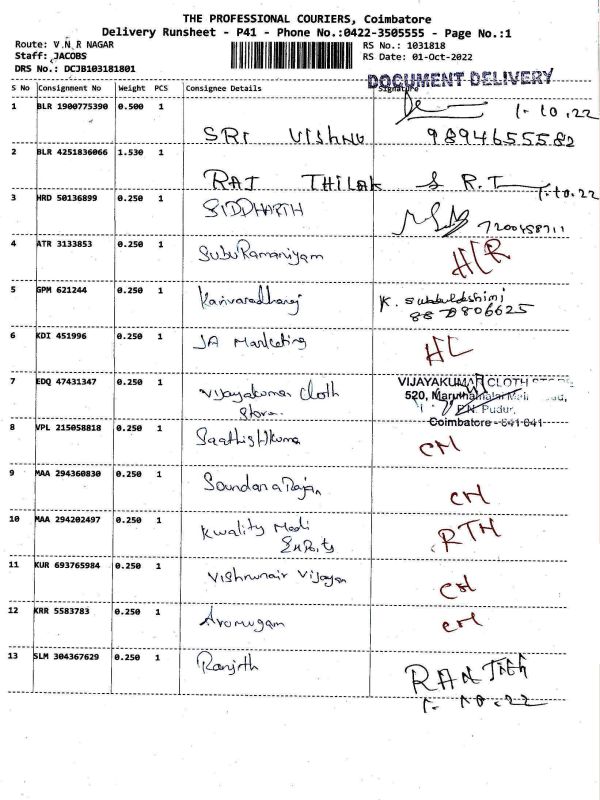 THE PROFESSIONAL COURIERS, Coimbatore
Delivery Runsheet - P41 - Phone No.:0422-3505555 - Page No.:1
Route: V N R NAGAR
RS No.: 1031818
Staff: JACOBS
RS Date: 01-Oct-2022
DRS No.: DCJB103181801
DOCUMENT DELIVERY
S No Consignment No Weight PCS Consignee Details Signature
1 BLR 1900775390 0.500 1 SRI VISHNU 1.10.22
9894655582
2 BLR 4251836066 1.530 1 RAJ THILAK S R.T 1.10.22
3 HRD 50136899 0.250 1 SIDDHARTH 7200458711
4 ATR 3133853 0.250 1 Subu Ramaniyam HLR
5 GPM 621244 0.250 1 Karivaradharaj K.
6 KDI 451996 0.250 1 JA Marketing HL
7 EDQ 47431347 0.250 1 Vijayakumar Cloth Store VIJAYAKUMAR CLOTH STORE
520, Maruthamalai Main Road,
P.N. Pudur,
Coimbatore - 641 041
8 VPL 215058818 0.250 1 Saathish Kumar CM
9 MAA 294360830 0.250 1 Soundara Rajan CM
10 MAA 294202497 0.250 1 Kwality Medi RTH
11 KUR 693765984 0.250 1 Vijayan CM
12 KRR 5583783 0.250 1 Arumugam CM
13 SLM 304367629 0.250 1 Ranjith RANJITH
1.10.22